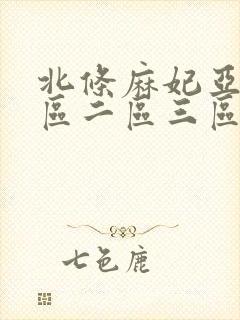 北條麻妃亞
區二區三區
七色鹿